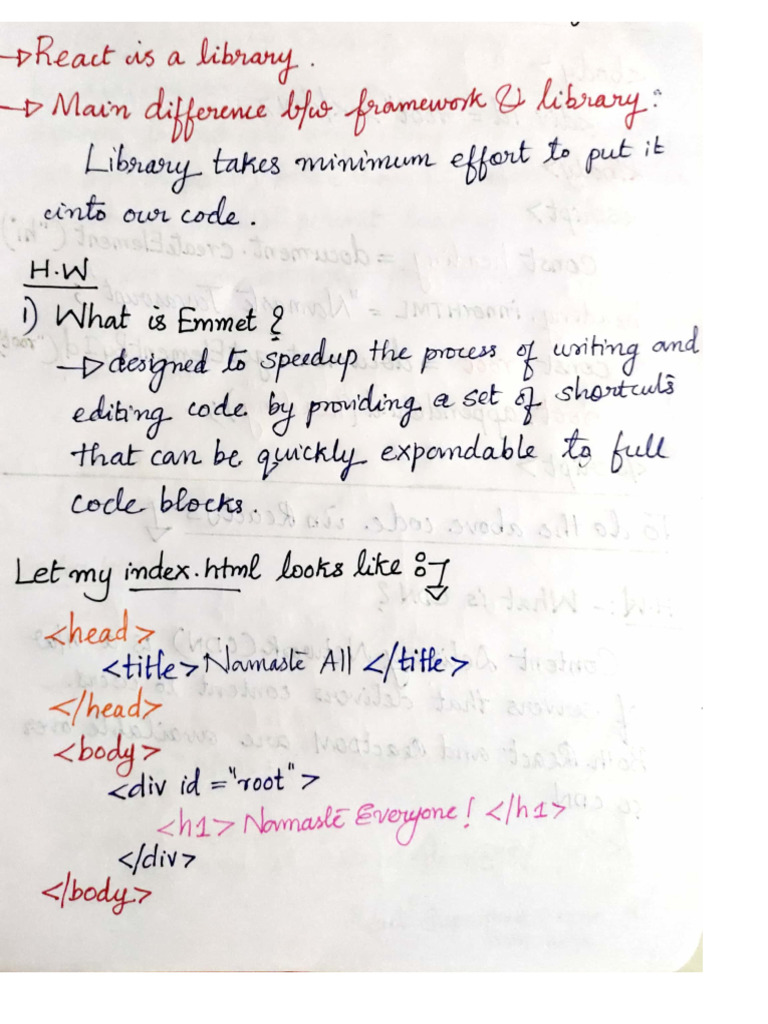 → React is a library.
→ Main difference b/w framework & library:
Library takes minimum effort to put it
into our code.
H.W
1) What is Emmet?
→ designed to speedup the process of writing and
editing code by providing a set of shortcuts
that can be quickly expandable to full
code blocks.
Let my index.html looks like :
<head>
<title> Namastē All </title>
</head>
<body>
<div id ="root">
<h1> Namastē Everyone! </h1>
</div>
</body>